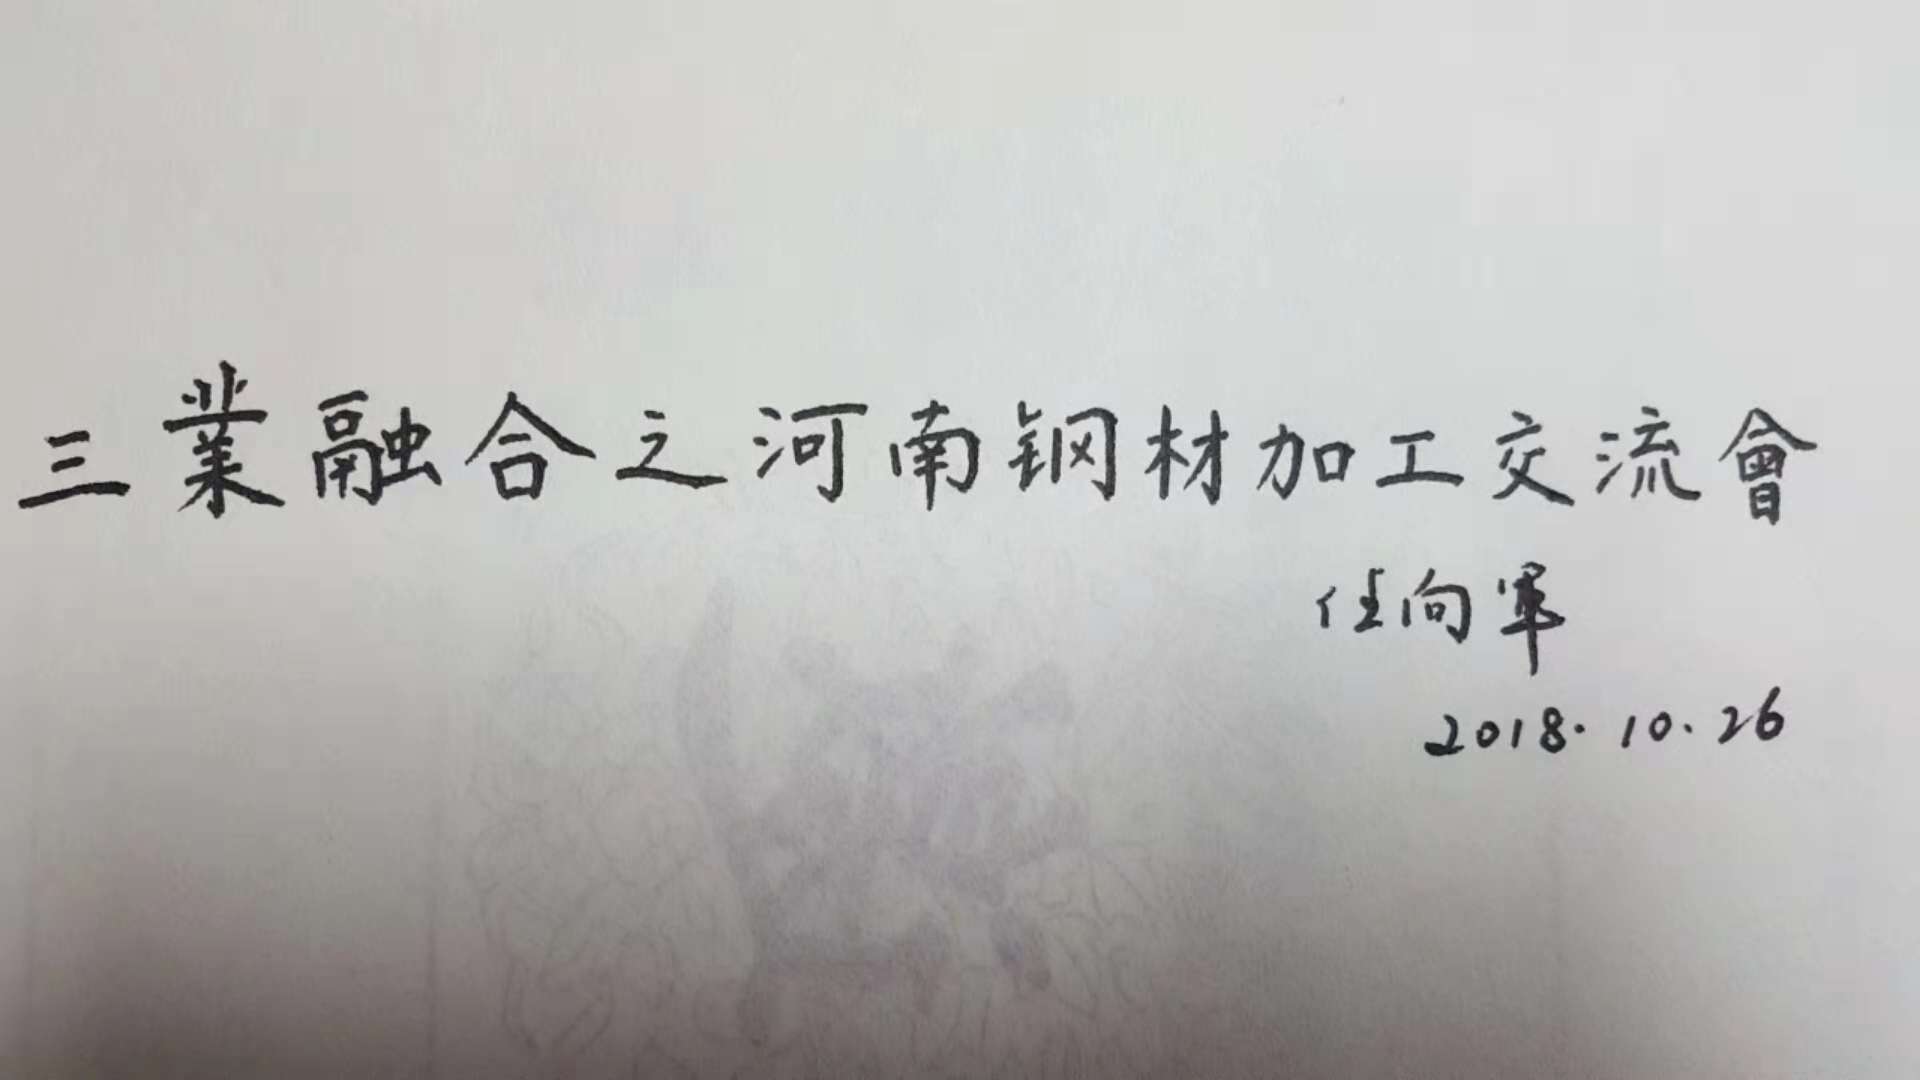 三業融合之河南钢材加工交流會
任向軍
2018.10.26